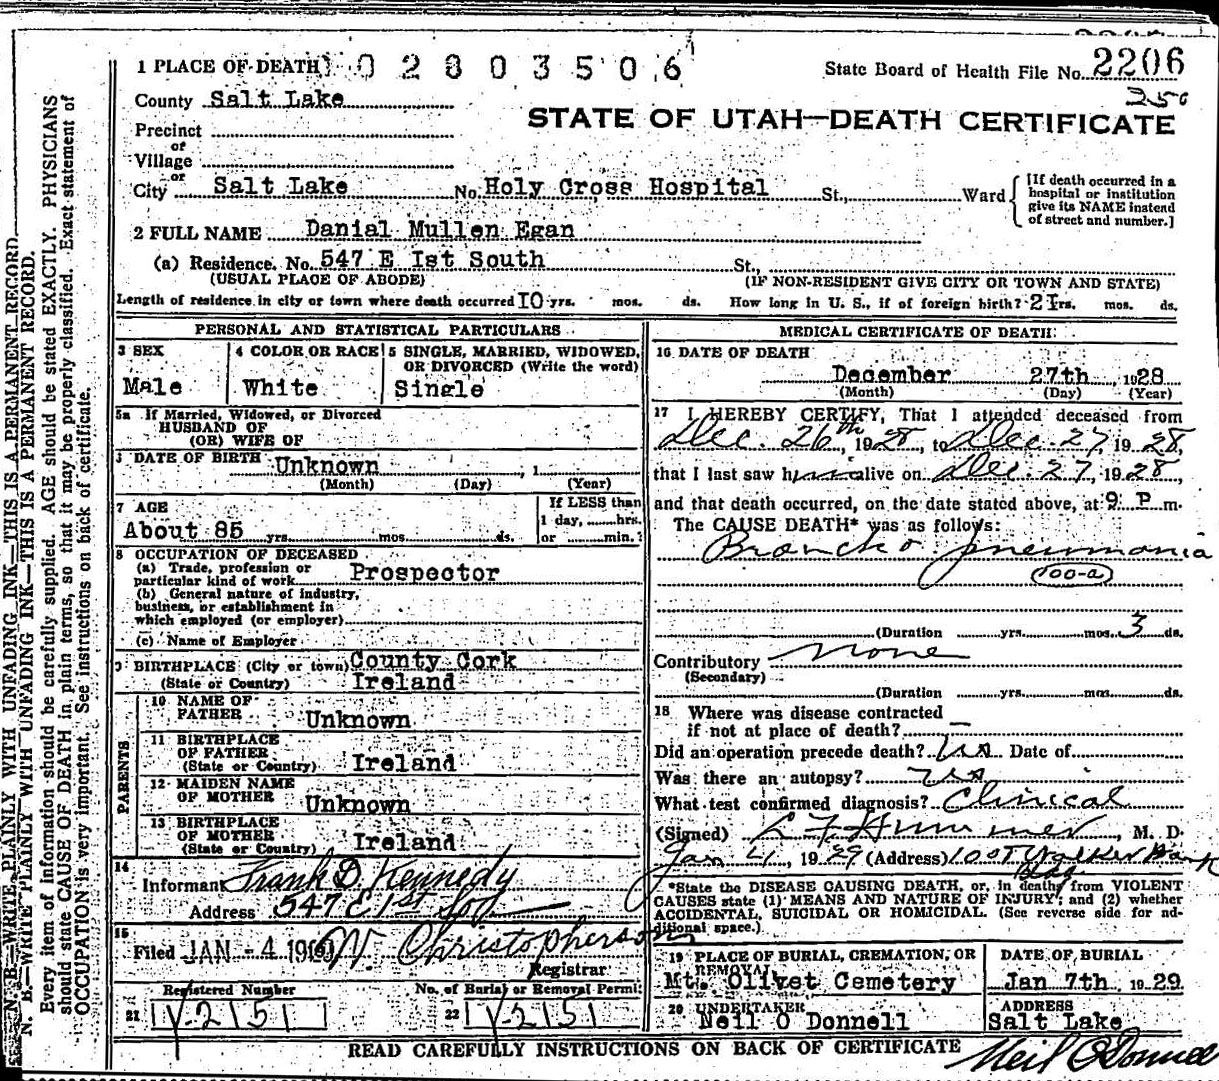 1 PLACE OF DEATH 02803506
State Board of Health File No. 2206
County Salt Lake
250
STATE OF UTAH—DEATH CERTIFICATE
Precinct
or
Village
or
City Salt Lake No. Holy Cross Hospital St., Ward
[If death occurred in a
hospital or institution
give its NAME instead
of street and number.]
2 FULL NAME Danial Mullen Egan
(a) Residence. No. 547 E Ist South St.,
(USUAL PLACE OF ABODE) (IF NON-RESIDENT GIVE CITY OR TOWN AND STATE)
Length of residence in city or town where death occurred IO yrs. mos. ds. How long in U. S., if of foreign birth? 2Irs. mos. ds.
PERSONAL AND STATISTICAL PARTICULARS
3 SEX
Male
4 COLOR OR RACE
White
5 SINGLE, MARRIED, WIDOWED,
OR DIVORCED (Write the word)
Single
5a If Married, Widowed, or Divorced
HUSBAND OF
(OR) WIFE OF
DATE OF BIRTH Unknown , 1
(Month) (Day) (Year)
7 AGE
About 85 yrs. mos. ds.
If LESS than
1 day, hrs.
or min.?
8 OCCUPATION OF DECEASED
(a) Trade, profession or
particular kind of work Prospector
(b) General nature of industry,
business, or establishment in
which employed (or employer)
(c) Name of Employer
9 BIRTHPLACE (City or town) County Cork
(State or Country) Ireland
PARENTS
10 NAME OF
FATHER Unknown
11 BIRTHPLACE
OF FATHER
(State or Country) Ireland
12 MAIDEN NAME
OF MOTHER Unknown
13 BIRTHPLACE
OF MOTHER
(State or Country) Ireland
14
Informant Frank D. Kennedy
Address 547 E 1st Sou
15
Filed JAN - 4 19 W. Christopherson
Registrar
Registered Number
21 V-2151
No. of Burial or Removal Permit
22 V-2151
MEDICAL CERTIFICATE OF DEATH
16 DATE OF DEATH
December 27th, 1928
(Month) (Day) (Year)
17 I HEREBY CERTIFY, That I attended deceased from
Dec. 26th, 1928, to Dec. 27, 1928,
that I last saw him alive on Dec. 27, 1928,
and that death occurred, on the date stated above, at 9 P. m.
The CAUSE DEATH* was as follows:
Broncho pneumonia
100-a
(Duration yrs. mos. 3 ds.
Contributory None
(Secondary)
(Duration yrs. mos. ds.
18 Where was disease contracted
if not at place of death? —
Did an operation precede death? Date of
Was there an autopsy?
What test confirmed diagnosis? Clinical
(Signed) M. D.
Jan 4, 1929 (Address) 1005 Walker Bank
Bldg.
*State the DISEASE CAUSING DEATH, or, in deaths from VIOLENT
CAUSES state (1) MEANS AND NATURE OF INJURY; and (2) whether
ACCIDENTAL, SUICIDAL OR HOMICIDAL. (See reverse side for ad-
ditional space.)
19 PLACE OF BURIAL, CREMATION, OR
REMOVAL
Mt. Olivet Cemetery
DATE OF BURIAL
Jan 7th 1929.
20 UNDERTAKER
Neil O Donnell
ADDRESS
Salt Lake
READ CAREFULLY INSTRUCTIONS ON BACK OF CERTIFICATE
Neil O'Donnell
N. B.—WRITE PLAINLY WITH UNFADING INK—THIS IS A PERMANENT RECORD
N. B.—WRITE PLAINLY WITH UNFADING INK—THIS IS A PERMANENT RECORD.
Every item of information should be carefully supplied. AGE should be stated EXACTLY. PHYSICIANS
should state CAUSE OF DEATH in plain terms, so that it may be properly classified. Exact statement of
OCCUPATION is very important. See instructions on back of certificate.